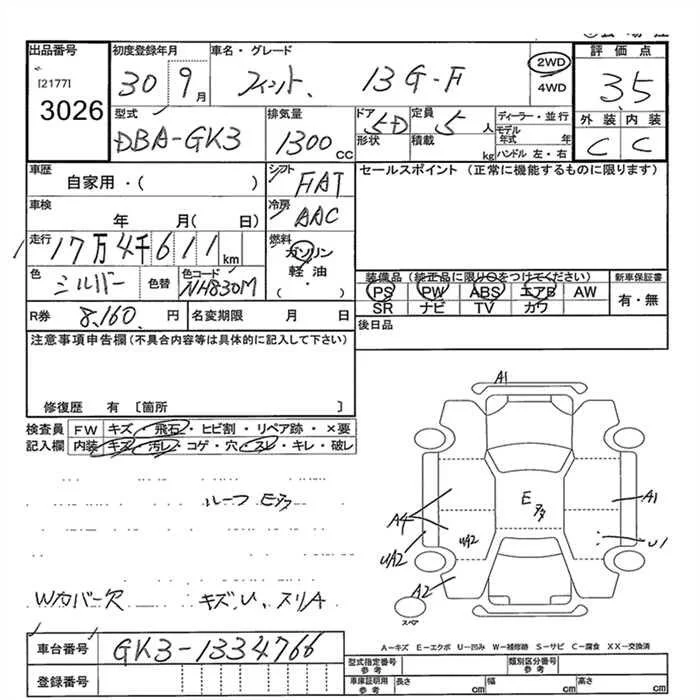 出品番号 初度登録年月 車名・グレード 2WD 4WD 評価点
[2177] 3026 30 9月 フィット 13G-F 3.5
型式 排気量 ドア形状 定員 積載 ディーラー・並行 モデル年式 年 ハンドル 左・右 外装 内装
DBA-GK3 1300cc 5D 5人 kg C C
車歴 シフト セールスポイント (正常に機能するものに限ります)
自家用・( ) FAT
車検 年 月( 日) 冷房 AAC
走行 17万4千611km 燃料 ガソリン 軽油・( )
色 シルバー 色替 色コード NH830M
装備品(純正品に限り○をつけてください) 新車保証書
PS PW ABS エアB AW 有・無
SR ナビ TV カワ
R券 8,160 円 名変期限 月 日 後日品
注意事項申告欄(不具合内容等は具体的に記入して下さい)
修復歴 有 〔箇所 〕
検査員 FW キズ・飛石・ヒビ割・リペア跡・×要
記入欄 内装 キズ・汚レ・コゲ・穴・スレ・キレ・破レ
A1
ルーフ Eアタ
E アタ
A4 A1
UA2 UA2 U1
A2
スペア
Wカバー欠 キズ、U、スリA
車台番号 GK3-1334766
A-キズ E-エクボ U-凹み W-補修跡 S-サビ C-腐食 XX-交換済
登録番号
型式指定番号 参考 類別区分番号 参考
車庫証明用 参考 長さ cm 幅 cm 高さ cm